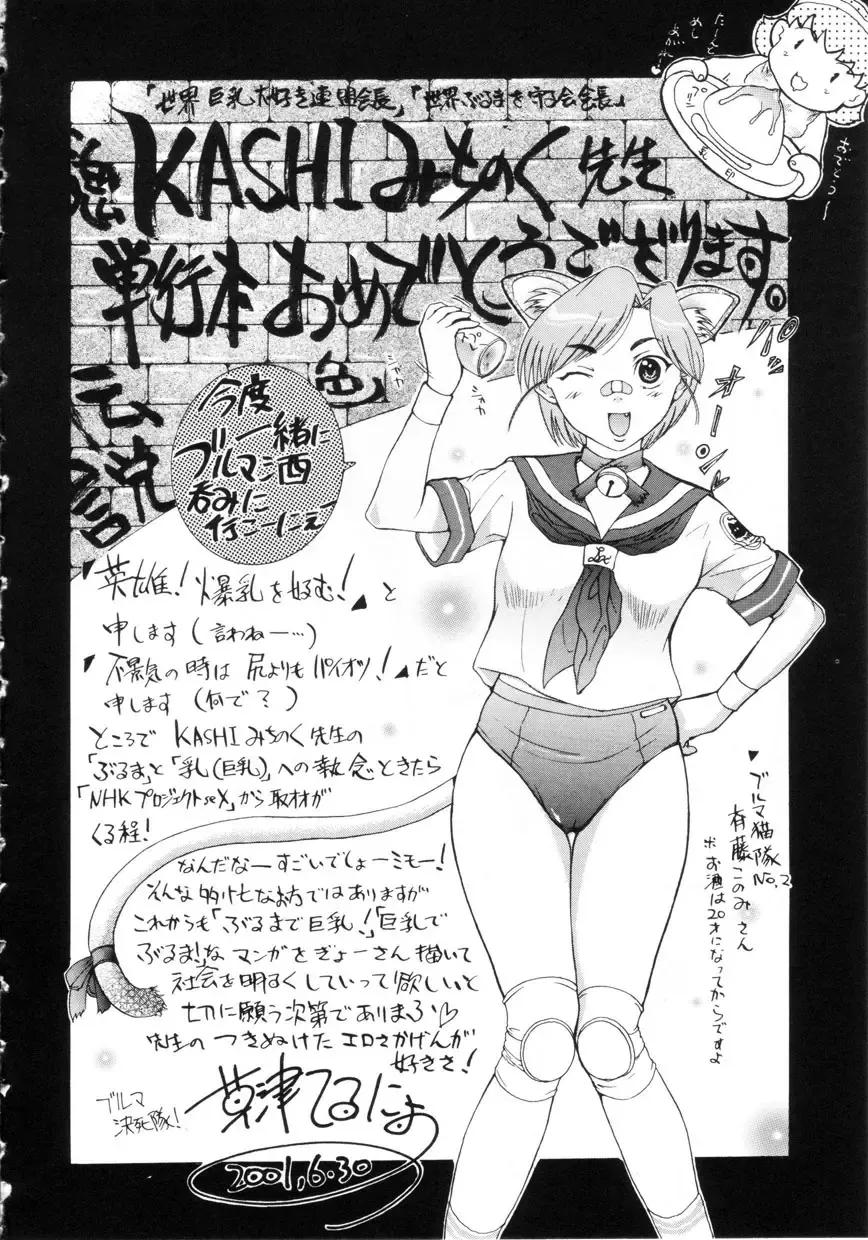 たーんと
めし
あがれ
おめでとう〜
乳
印
「世界巨乳大好き連盟会長」「世界ぶるまを守る会会長」
KASHIみちのく先生
単行本おめでとうございます。
伝説
色
今度
一緒に
ブルマ酒
呑みに
行こーにぇー
オーン
「英雄!爆乳を好む!」と
申します(言わねー…)
「不景気の時は尻よりもパイオツ!」だと
申します(何で?)
ところで KASHIみちのく先生の
「ぶるま」と「乳(巨乳)」への執念ときたら
「NHKプロジェクトseX」から取材が
くる程!
なんだなーすごいでしょーミモー!
そんな多忙なお方ではありますが
これからも「ぶるまで巨乳!」「巨乳で
ぶるま!」なマンガをぎょーさん描いて
社会を明るくしていって欲しいと
切に願う次第でありまふ♡
先生のつきぬけたエロさかげんが
好きさ!
ブルマ猫隊
No.2
斉藤このみさん
※お酒は20才になってからですよ
ブルマ
決死隊!
草津てるにょ
2001.6.30